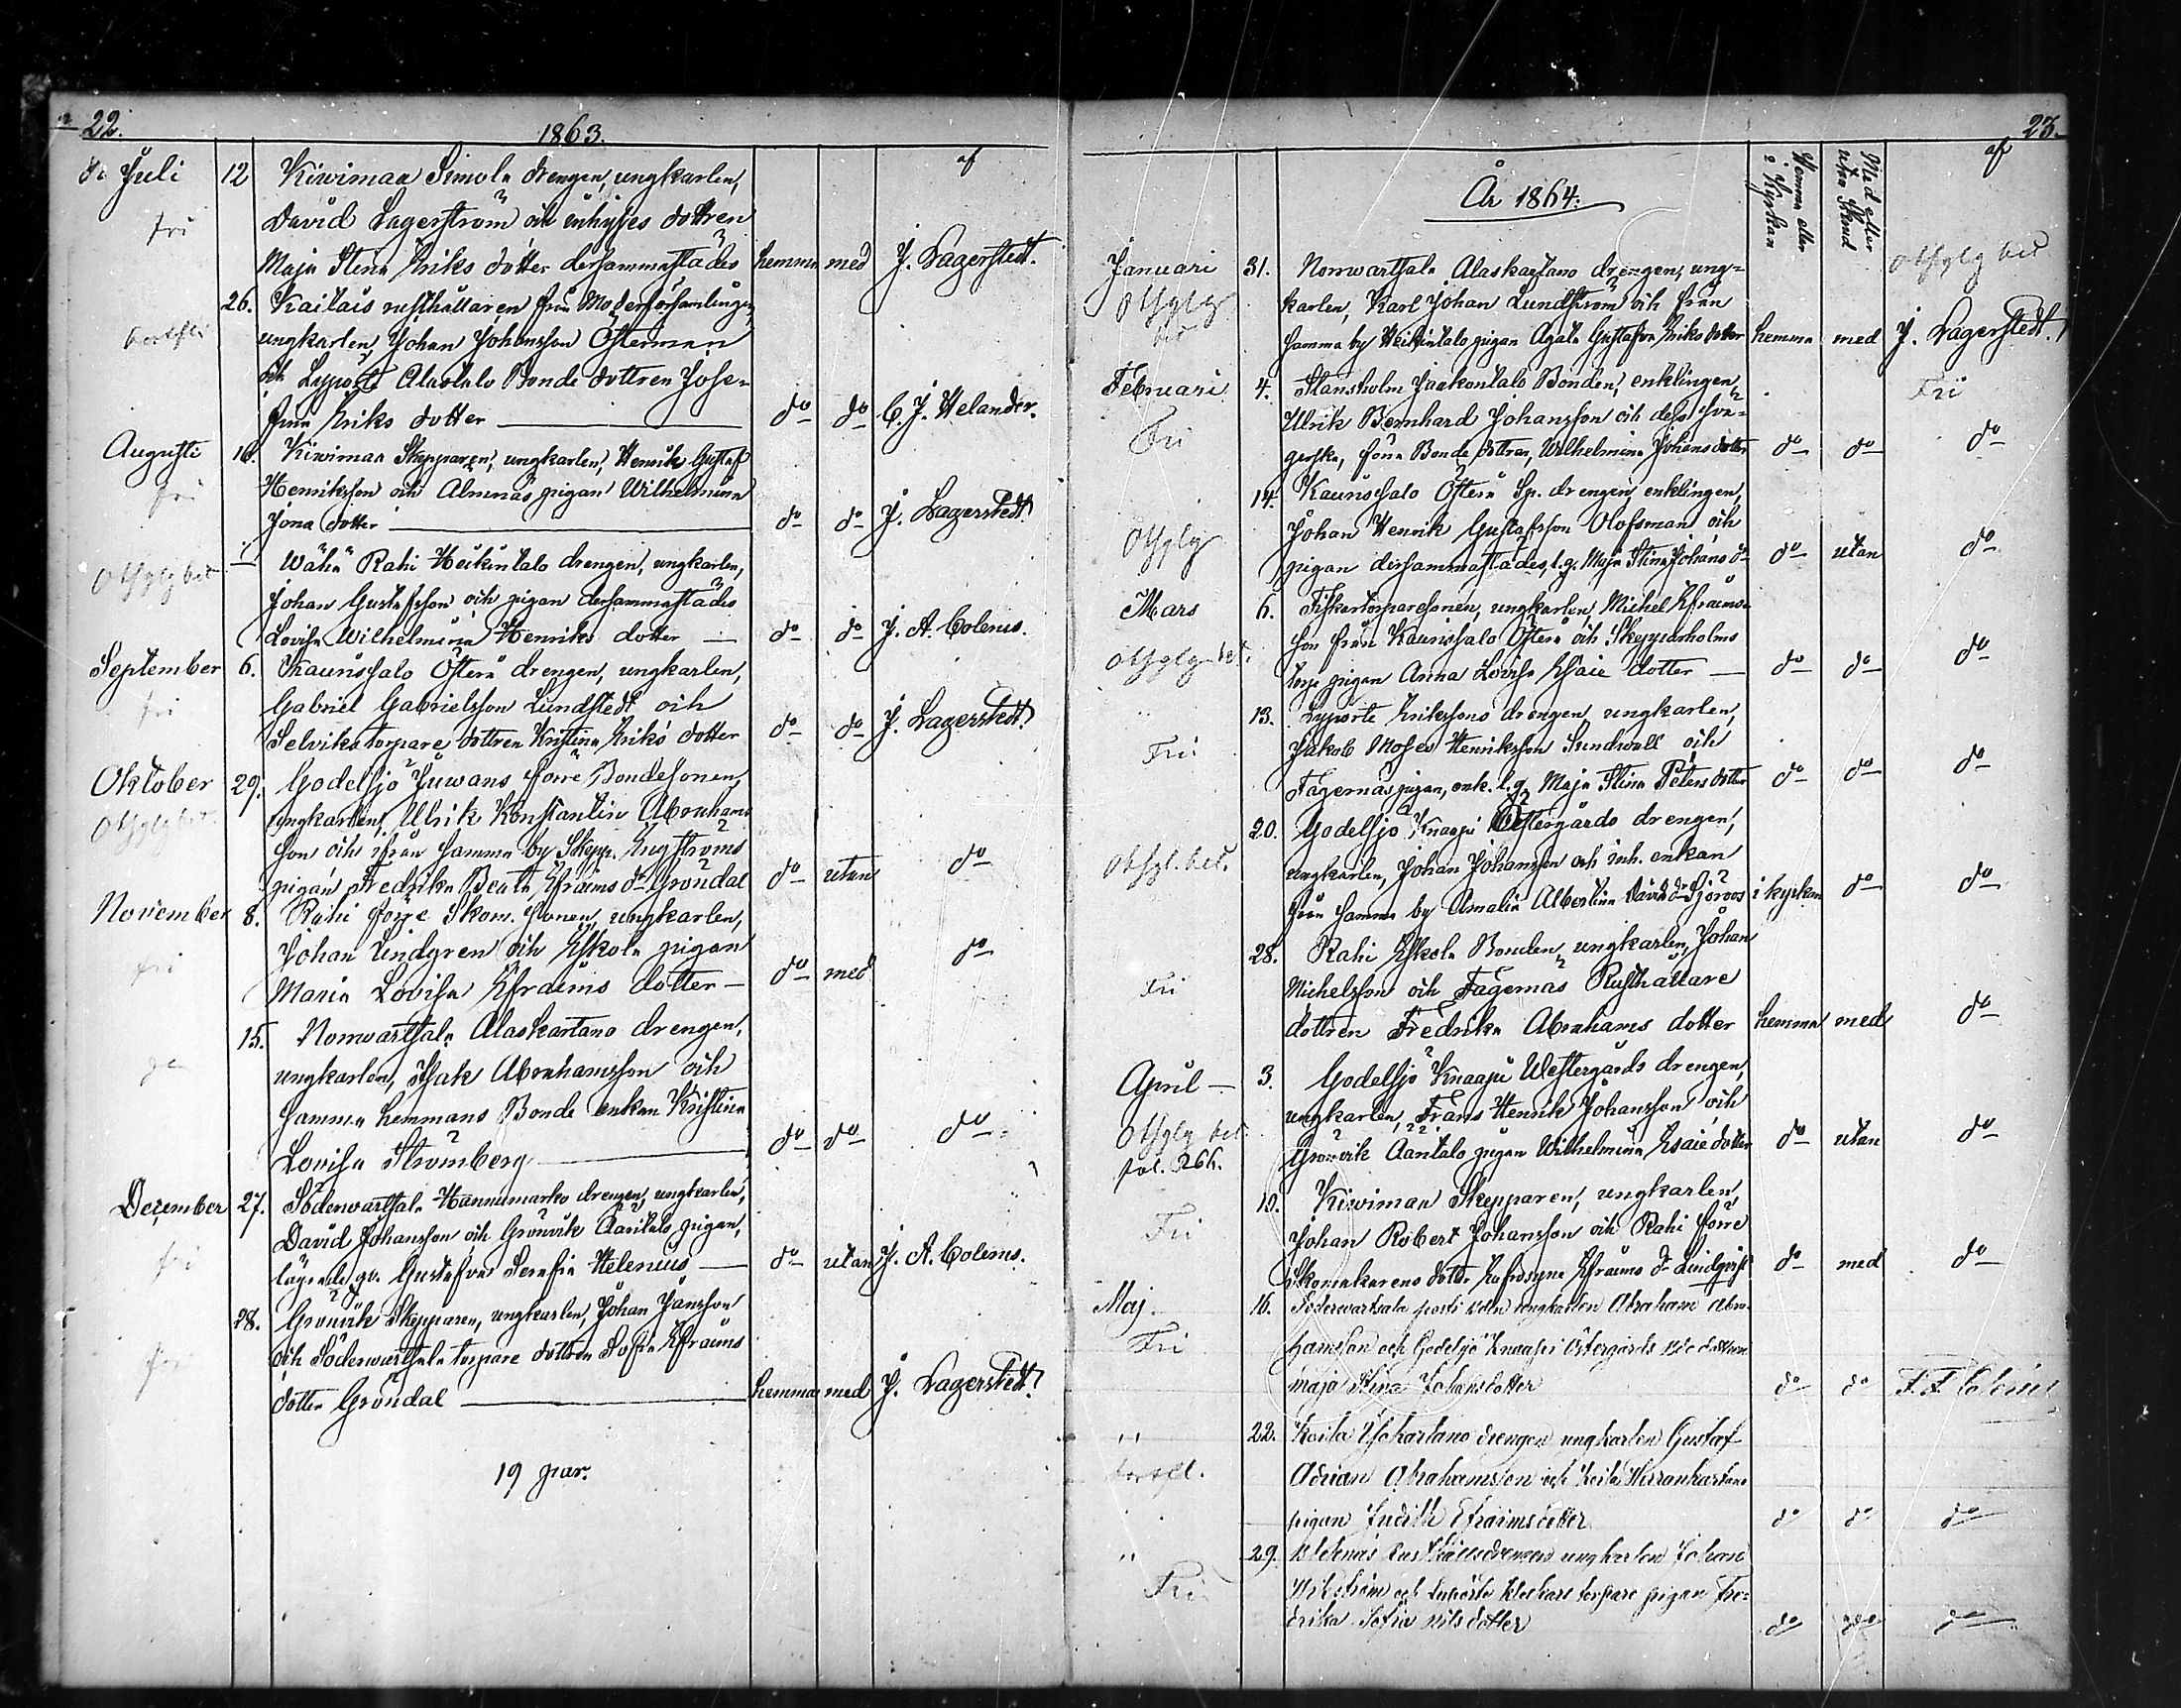 22.
1863.
af
Juli 12 Kiwimaa Simola drengen, ungkarlen,
fri David Lagerström och inhyses dottren
Maja Stina Eriks dotter dersammastädes hemma med J. Lagerstedt.
26. Kailais rusthållaren från Moderförsamlingen,
ungkarlen, Johan Johansson Österman
och Lypertö Alastalo Bonde dottren Jose-
fina Eriks dotter do do C. J. Helander.
Augusti 16. Kiwimaa Skepparen, ungkarlen, Henrik Gustaf
fri Henriksson och Almnäs pigan Wilhelmina
Jona dotter do do J. Lagerstedt
— Wähä Rahi Heikintalo drengen, ungkarlen,
Otfglg bet Johan Gustafsson och pigan dersammastädes
Lovisa Wilhelmina Henriks dotter — do do J. A. Colerus.
September 6. Kaurissalo Österå drengen, ungkarlen,
fri Gabriel Gabrielsson Lundstedt och
Selviks torpare dottren Kristina Eriks dotter do do J. Lagerstedt
Oktober 29. Godelsjö Juwans förre Bondesonen,
Otfglg bet. ungkarlen, Ulrik Konstantin Abrahams
son och från samma by Skepp. Engströms
pigan Fredrika Beata Efraims dr Gröndal do utan do
November 8. Rahi förre Skom. sonen, ungkarlen,
Johan Lindgren och Eskola pigan
fri Maria Lovisa Efraims dotter — do med do
15. Norrwartsala Alaskartano drengen,
ungkarlen, Isak Abrahamsson och
samma hemmans Bonde enkan Kristina
Lovisa Strömberg do do do
December 27. Söderwartsala Hannumarko drengen, ungkarlen,
David Johansson och Grönvik Aantalo pigan,
fri lägrade qv. Gustafva Serafia Helenius — do utan J. A. Colerus.
28. Grönvik Skepparen, ungkarlen, Johan Jansson
fri och Söderwartsala torpare dottren Sofia Efraims
dotter Gröndal hemma med J. Lagerstedt
19 par.
23.
År 1864.
Hemma eller i Kyrkan
Med eller utan Brud
af
Januari 31. Norrwartsala Alaskartano drengen, ung-
Otfglg bet karlen, Karl Johan Lundström och från
samma by Heikintalo pigan Agata Gustafva Eriks dotter hemma med J. Lagerstedt.
Otfglg bet
Februari 4. Stansholm Jaakontalo Bonden, enklingen, Fri
Fri Ulrik Bernhard Johansson och dess svä-
gerska, förra Bonde dottren, Wilhelmina Johans dotter do do do
14. Kaurissalo Österå Sp. drengen, enklingen,
Otfglg Johan Henrik Gustafsson Olofsman och
pigan dersammastädes, l.q. Maja Stina Johans dr do utan do
Mars 6. Fiskartorparesonen, ungkarlen Michel Efraims-
Otfglg bet. son från Kaurissalo Österå och Skepparholms
torp pigan Anna Lovisa Esaie dotter — do do do
13. Lypertö Erikssons drengen, ungkarlen,
Fri Jakob Moses Henriksson Sundwall och
Fagernäs pigan, enk. l.q. Maja Stina Peters dotter do do do
20. Godelsjö Knaapi Östergårds drengen,
Otfgl. bet. ungkarlen, Johan Johansson och inh. enkan
från samma by Amalia Albertina Davids dr Sjöroos i kyrkan do do
28. Rahi Eskola Bonden, ungkarlen, Johan
Fri Michelsson och Fagernäs Rusthållare
dottren Fredrika Abrahams dotter hemma med do
April — 3. Godelsjö Knaapi Westergårds drengen,
Otfglg bet. ungkarlen, Frans Henrik Johansson och
fol. 266. Grönvik Aantalo pigan Wilhelmina Esaie dotter do utan do
10. Kiwimaa Skepparen, ungkarlen,
Fri Johan Robert Johansson och Rahi förre
Skomakarens dotter Eufrosyne Efraims dr Lindqvist do med do
Maj 16. Söderwartsala posti bdn ungkarlen Abraham Abra-
Fri hamsson och Godelsjö Knaapi Östergårds Bde dottren
Maja Stina Johansdotter do do
,, 22. Koila Ylikartano drengen ungkarlen Gustaf
Adrian Abrahamsson och Koila
pigan Judith Efraimsdotter do do do
,, 29. Bleknäs drengen ungkarlen Johan
Fri och Lypertö torpare pigan Fre-
drika Sofia Nilsdotter do do do